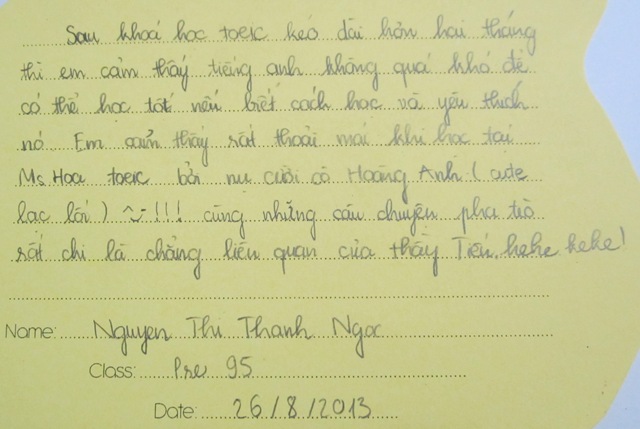 Sau khoá học toeic kéo dài hơn hai tháng
thì em cảm thấy tiếng anh không quá khó để
có thể học tốt nếu biết cách học và yêu thích
nó. Em cảm thấy rất thoải mái khi học tại
Ms Hoa toeic bởi nụ cười cô Hoàng Anh (cute
lạc lối) ~!!! cùng những câu chuyện pha trò
rất chi là chẳng liên quan của thầy Tiến. hehe hehe!
Name: Nguyen Thi Thanh Ngoc
Class: Pre 95
Date: 26/8/2013